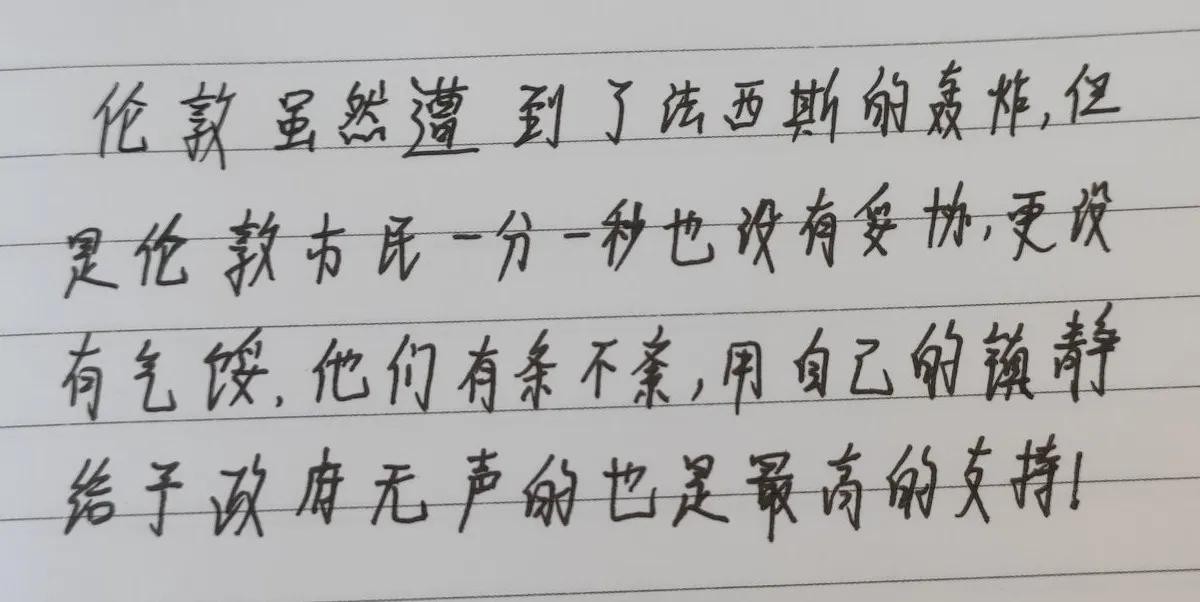 伦敦虽然遭到了法西斯的轰炸,但
是伦敦市民一分一秒也没有妥协,更没
有气馁.他们有条不紊,用自己的镇静
给予政府无声的也是最高的支持!